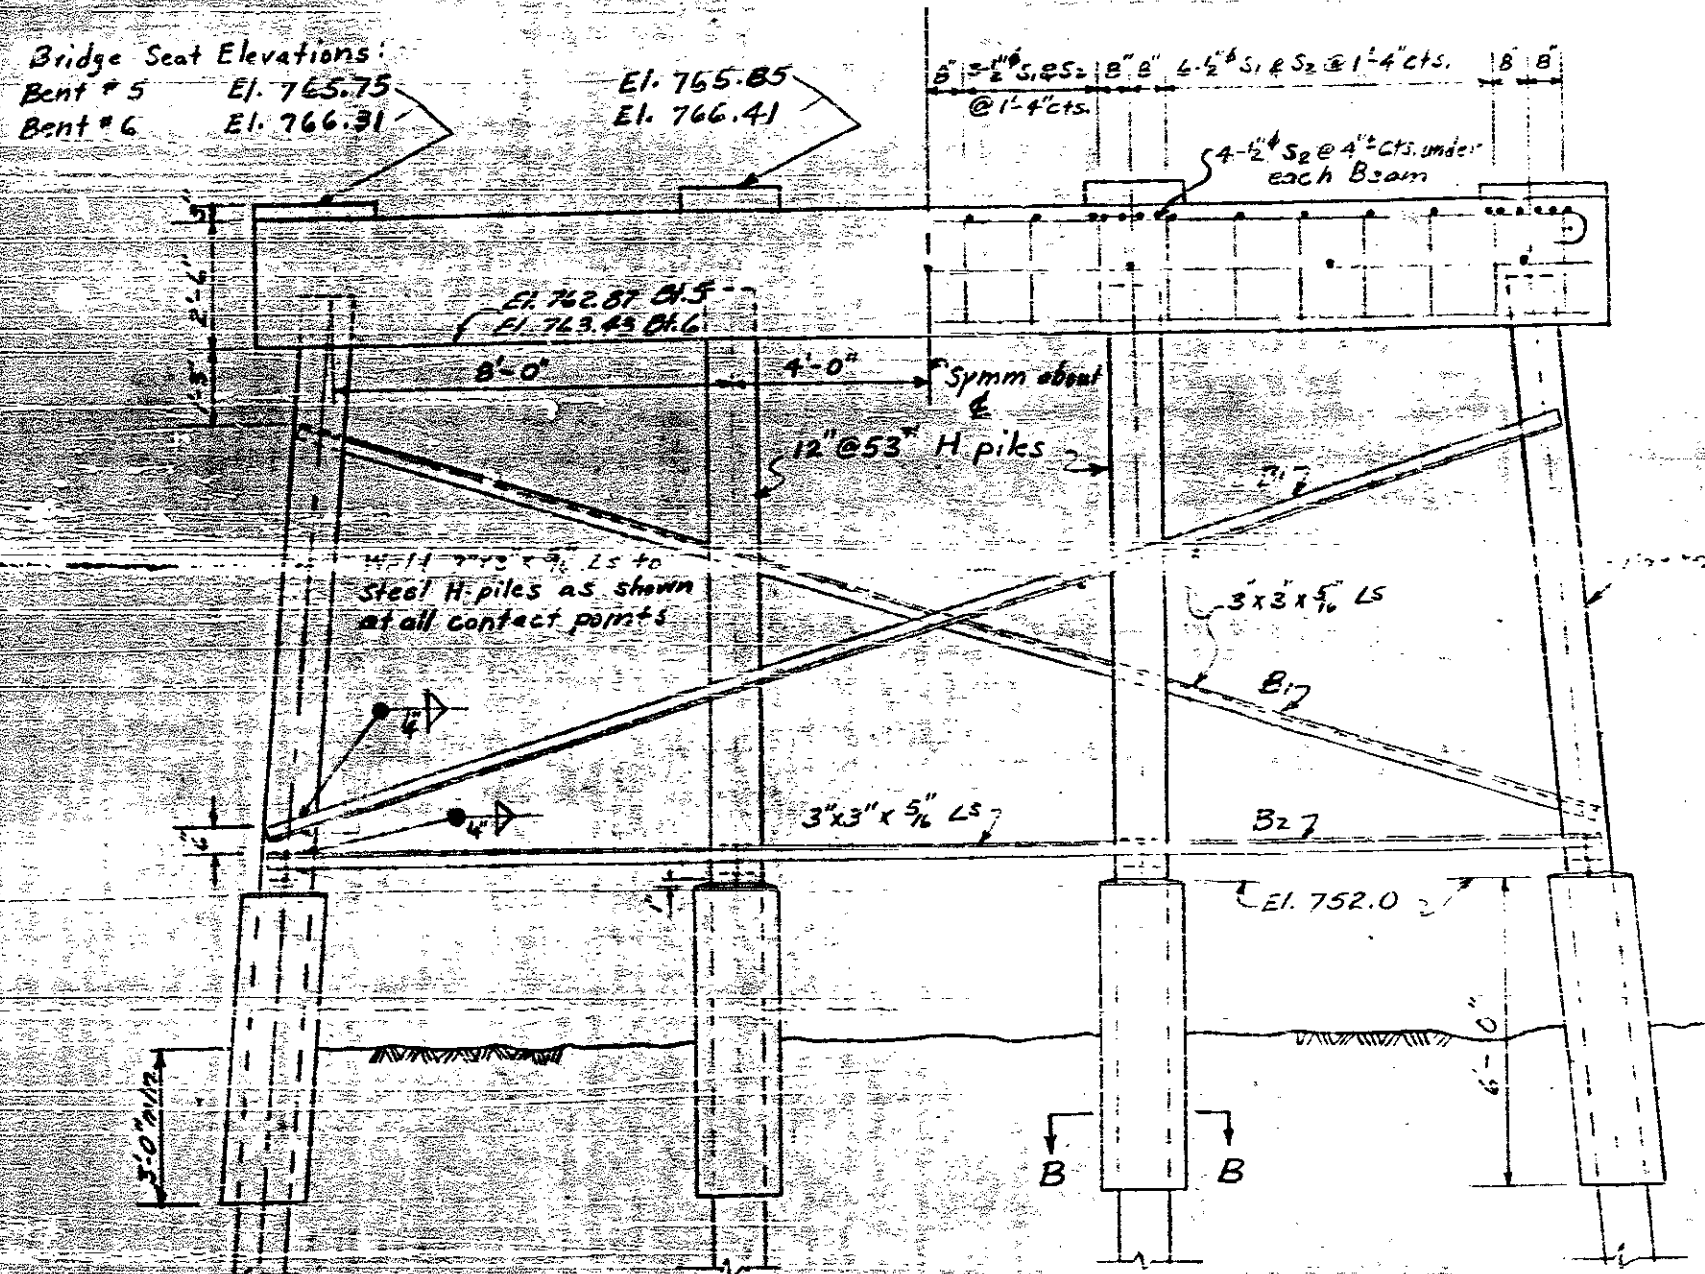 Bridge Seat Elevations:
Bent #5 El. 765.75
Bent #6 El. 766.31
El. 765.85
El. 766.41
8" 3-½"ϕ S₁ & S₂ 8" 8" 6-½"ϕ S₁ & S₂ @ 1'-4" cts. 8" 8"
@ 1'-4" cts.
4-½"ϕ S₂ @ 4"± cts. under
each Beam
2'-6"
El. 762.87 Bt. 5
El. 763.43 Bt. 6
8'-0" 4'-0"
Symm about
℄
12" @ 53# H piles
Ls to
steel H-piles as shown
at all contact points
3"x3"x5/16" Ls
B₁
¼"
6"
¼"
3"x3"x5/16" Ls
B₂
1"
El. 752.0
3'-0" min.
6'-0"
B B